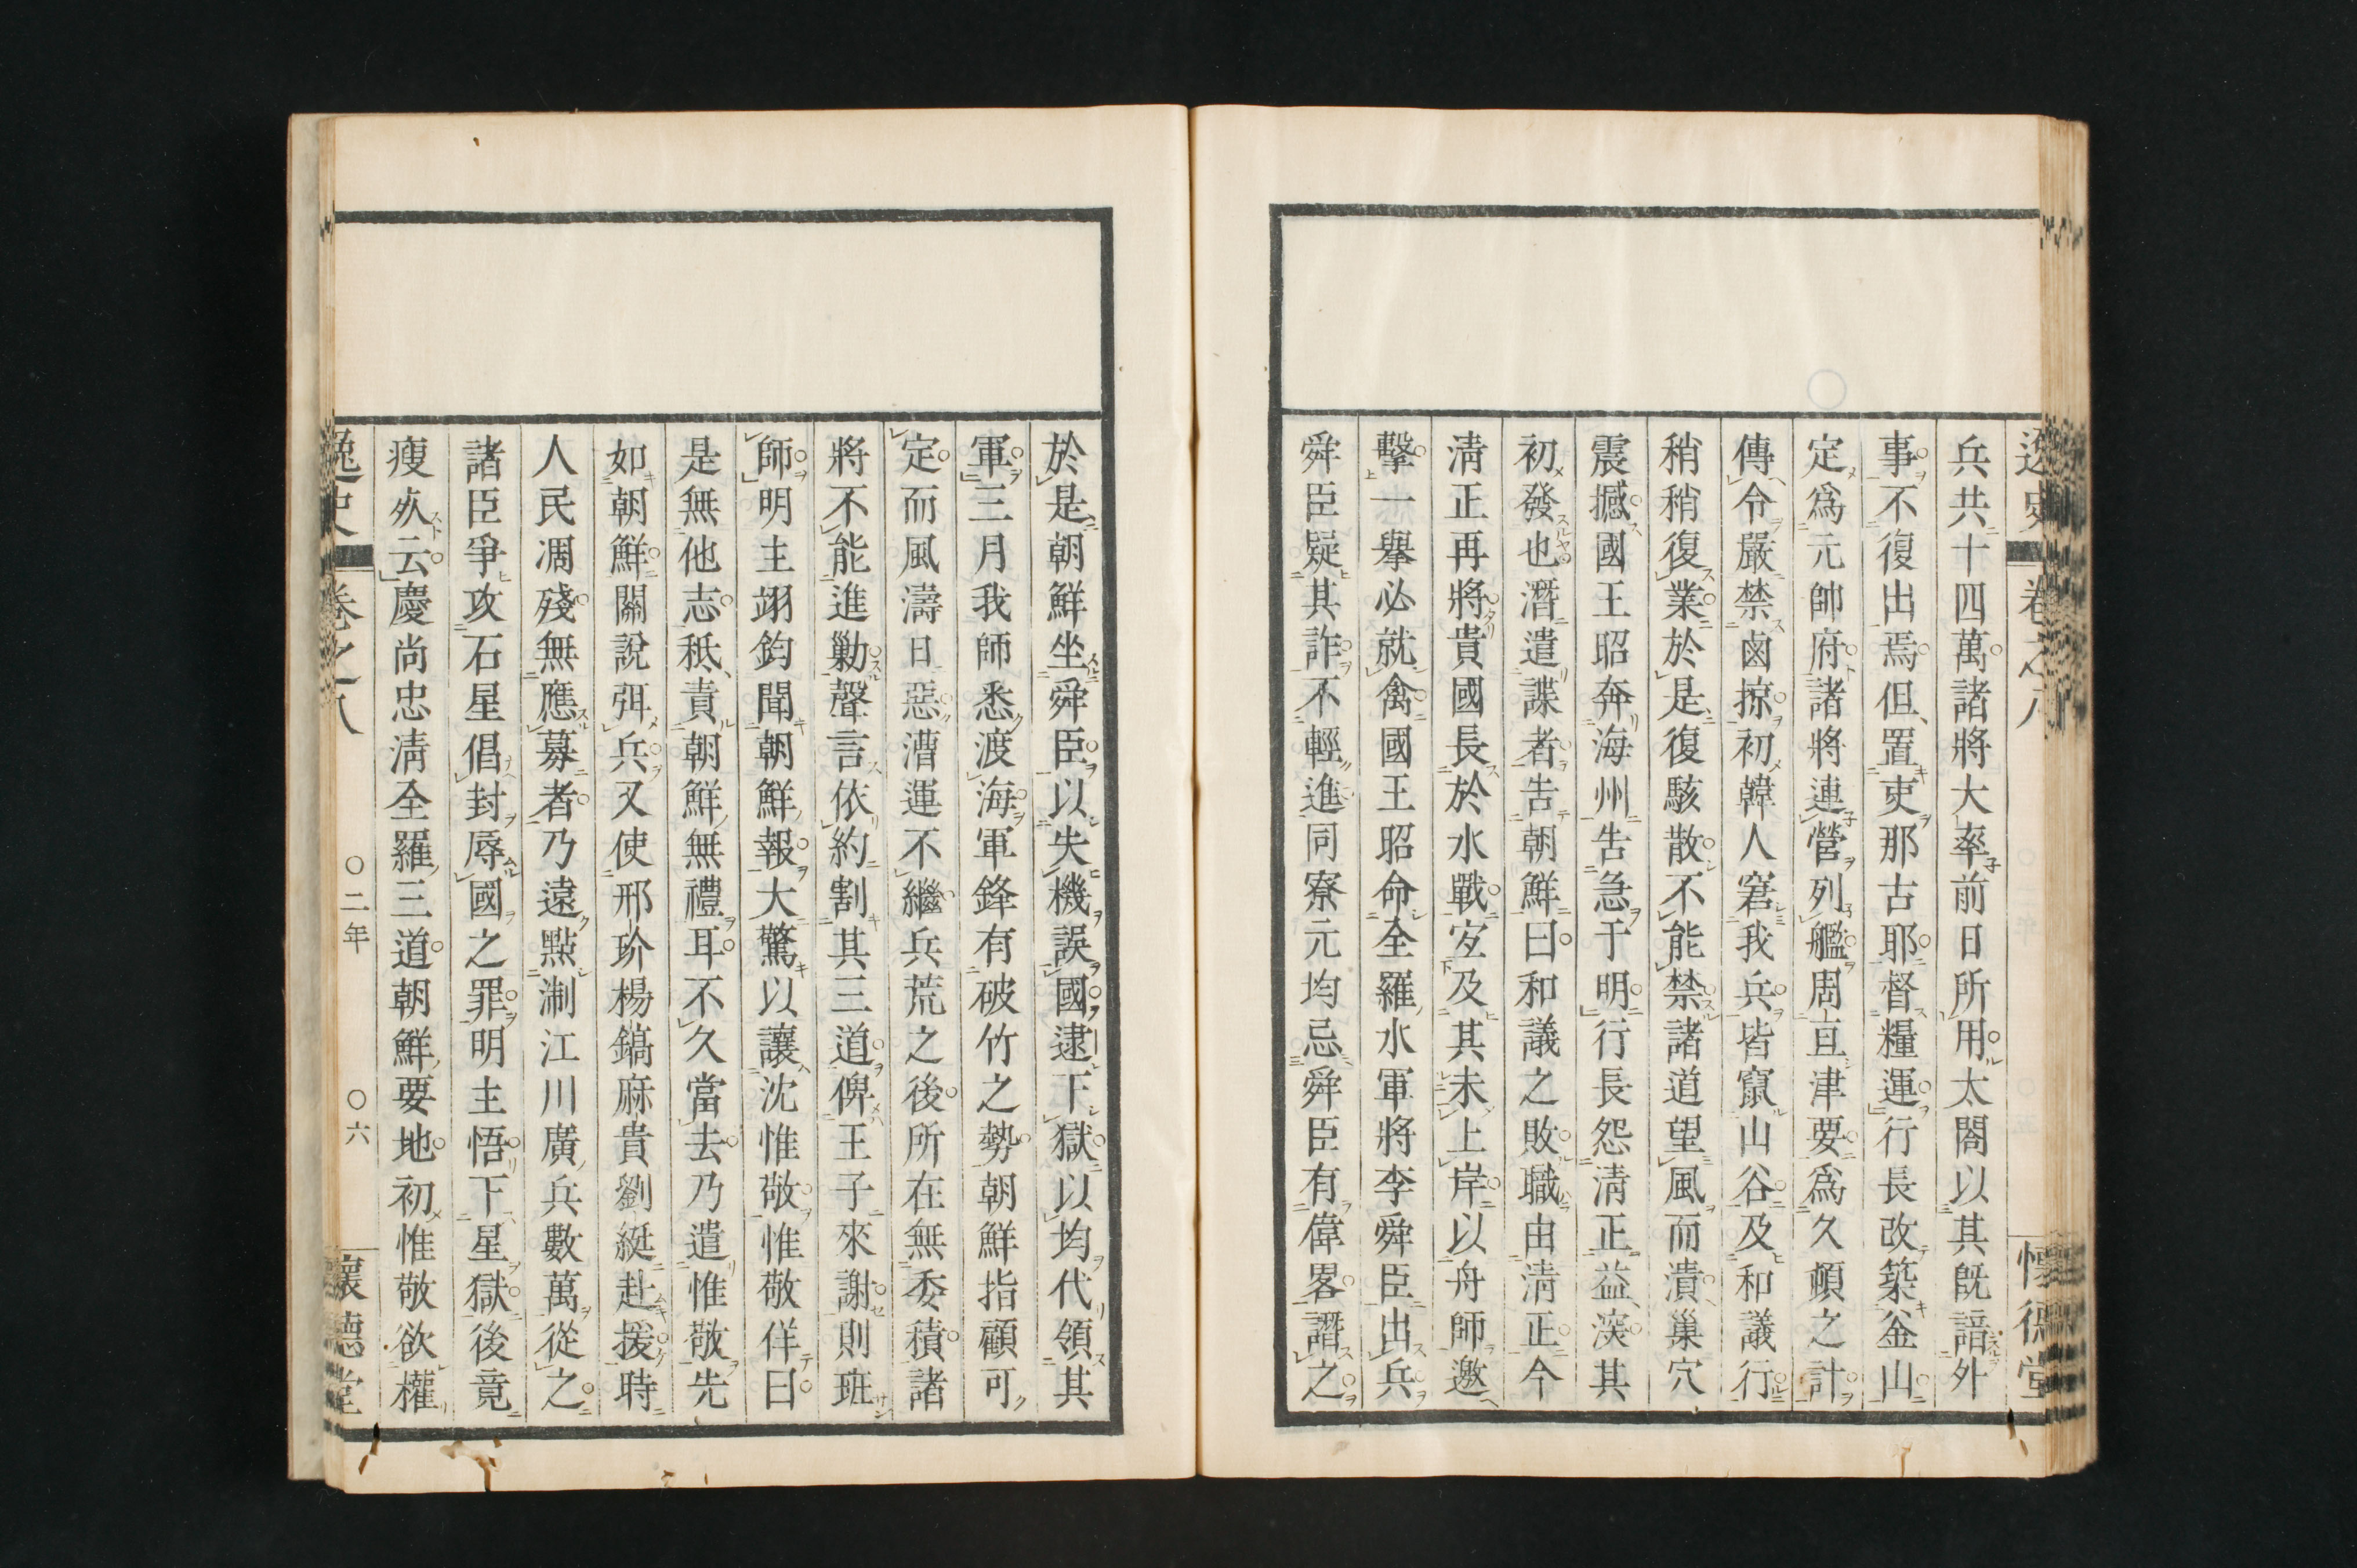 逸史 卷之八 懷德堂
兵共十四萬諸將大率前日所用太閤以其既諳外
事不復出焉但置吏那古耶督糧運行長改築釜山
定爲元帥府諸將連營列艦周亘津要爲久頓之計
傳令嚴禁鹵掠初韓人窘我兵皆竄山谷及和議行
稍稍復業於是復駭散不能禁諸道望風而潰巢穴
震撼國王昭奔海州告急于明行長怨淸正益深其
初發也潛遣諜者告朝鮮曰和議之敗職由淸正今
淸正再將貴國長於水戰宐及其未上岸以舟師邀
擊一擧必就禽國王昭命全羅水軍將李舜臣出兵
舜臣疑其詐不輕進同寮元均忌舜臣有偉畧譖之
於是朝鮮坐舜臣以失機誤國逮下獄以均代領其
軍三月我師悉渡海軍鋒有破竹之勢朝鮮指顧可
定而風濤日惡漕運不繼兵荒之後所在無委積諸
將不能進勦聲言依約割其三道俾王子來謝則班
師明主翊鈞聞朝鮮報大驚以讓沈惟敬惟敬佯曰
是無他志秖責朝鮮無禮耳不久當去乃遣惟敬先
如朝鮮關說弭兵又使邢玠楊鎬麻貴劉綎赴援時
人民凋殘無應募者乃遠點淛江川廣兵數萬從之
諸臣爭攻石星倡封辱國之罪明主悟下星獄後竟
瘦死云慶尚忠淸全羅三道朝鮮要地初惟敬欲權
逸史 卷之八 〇二年 〇六 懷德堂